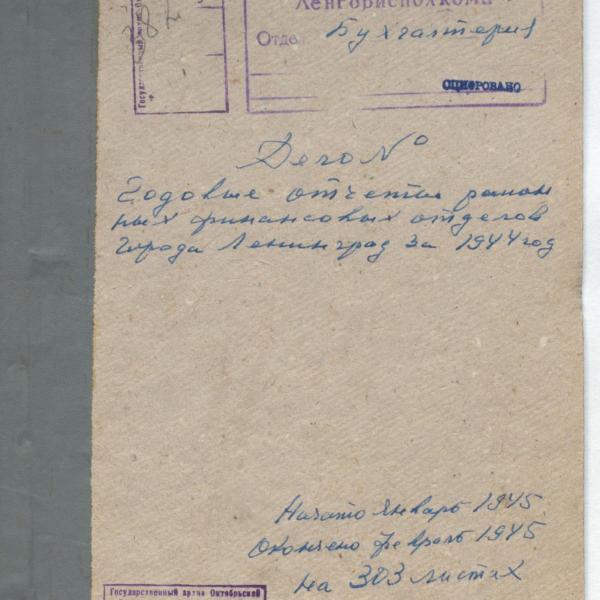 Ленгорисполкома
Отде
Бухгалтерия
ОЦИФРОВАНО
Дело №
Годовые отчеты район
ных финансовых отделов
города Ленинград за 1944 год
Начато январь 1945
Окончено февраль 1945
на 303 листах
Государственный архив Октябрьской